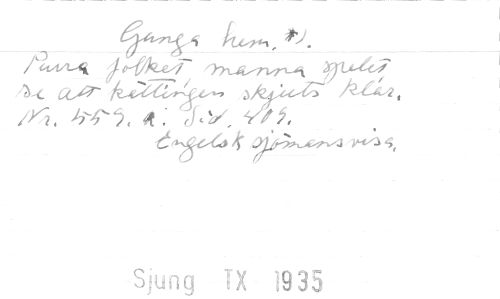 Gunga hem. *).
Purra folket, manna spelet
se att kettingen skjuts klar.
Nr. 559. a. Sid. 409.
Engelsk sjömansvisa.
Sjung TX 1935